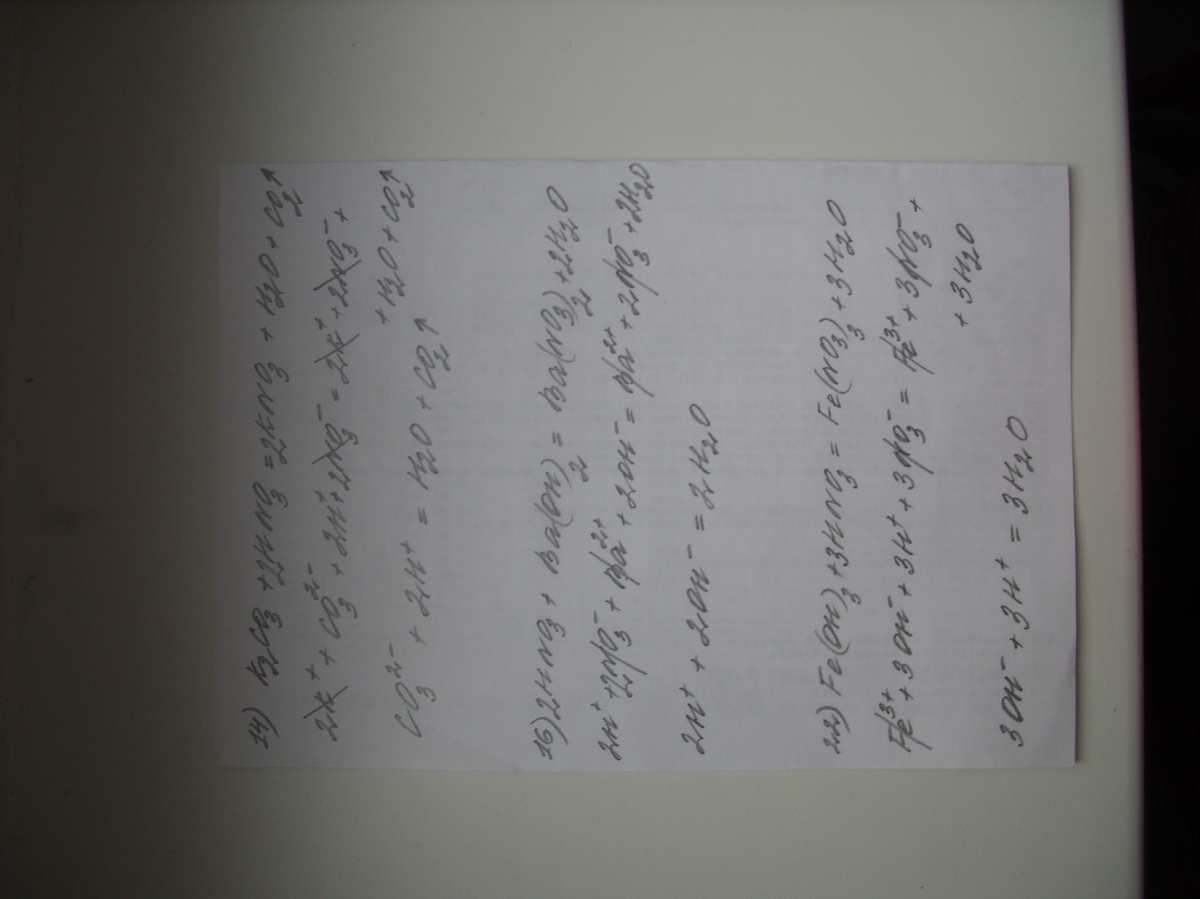 14) K₂CO₃ + 2HNO₃ = 2KNO₃ + H₂O + CO₂↑
2K⁺ + CO₃²⁻ + 2H⁺ + 2NO₃⁻ = 2K⁺ + 2NO₃⁻ +
+ H₂O + CO₂↑
CO₃²⁻ + 2H⁺ = H₂O + CO₂↑
16) 2HNO₃ + Ba(OH)₂ = Ba(NO₃)₂ + 2H₂O
2H⁺ + 2NO₃⁻ + Ba²⁺ + 2OH⁻ = Ba²⁺ + 2NO₃⁻ + 2H₂O
2H⁺ + 2OH⁻ = 2H₂O
22) Fe(OH)₃ + 3HNO₃ = Fe(NO₃)₃ + 3H₂O
Fe³⁺ + 3OH⁻ + 3H⁺ + 3NO₃⁻ = Fe³⁺ + 3NO₃⁻ +
+ 3H₂O
3OH⁻ + 3H⁺ = 3H₂O